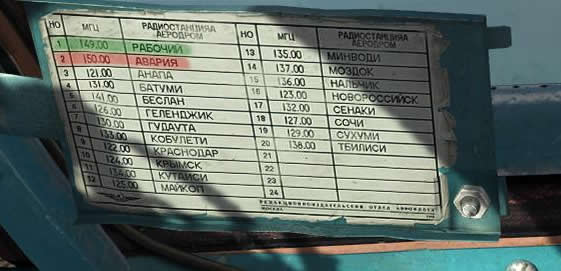 НО МГЦ РАДИОСТАНЦИЯА АЕРОДРОМ
1 149.00 РАБОЧИЙ
2 150.00 АВАРИЯ
3 121.00 АНАПА
4 131.00 БАТУМИ
5 141.00 БЕСЛАН
6 126.00 ГЕЛЕНДЖИК
7 130.00 ГУДАУТА
8 133.00 КОБУЛЕТИ
9 122.00 КРАСНОДАР
10 124.00 КРЫМСК
11 134.00 КУТАИСИ
12 125.00 МАЙКОП
НО МГЦ РАДИОСТАНЦИЯА АЕРОДРОМ
13 135.00 МИНВОДИ
14 137.00 МОЗДОК
15 136.00 НАЛЬЧИК
16 123.00 НОВОРОССИЙСК
17 132.00 СЕНАКИ
18 127.00 СОЧИ
19 129.00 СУХУМИ
20 138.00 ТБИЛИСИ
21
22
23
24
МОСКВА